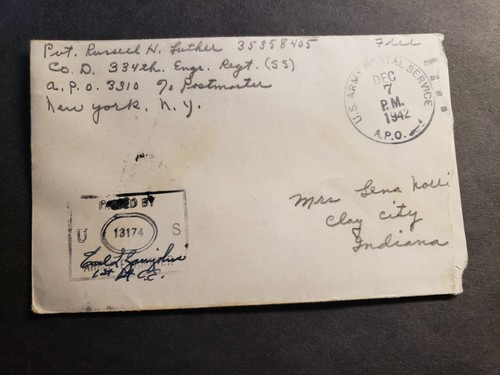 Pvt. Russell H. Luther 35358405 Free
Co. D. 334th. Engr. Regt. (SS)
A.P.O. 3310 % Postmaster
New York, N.Y.
U.S. ARMY POSTAL SERVICE
DEC
7
P.M.
1942
A.P.O.
PASSED BY
U 13174 S
1st Lt C.E.
Mrs Lena
Clay City
Indiana